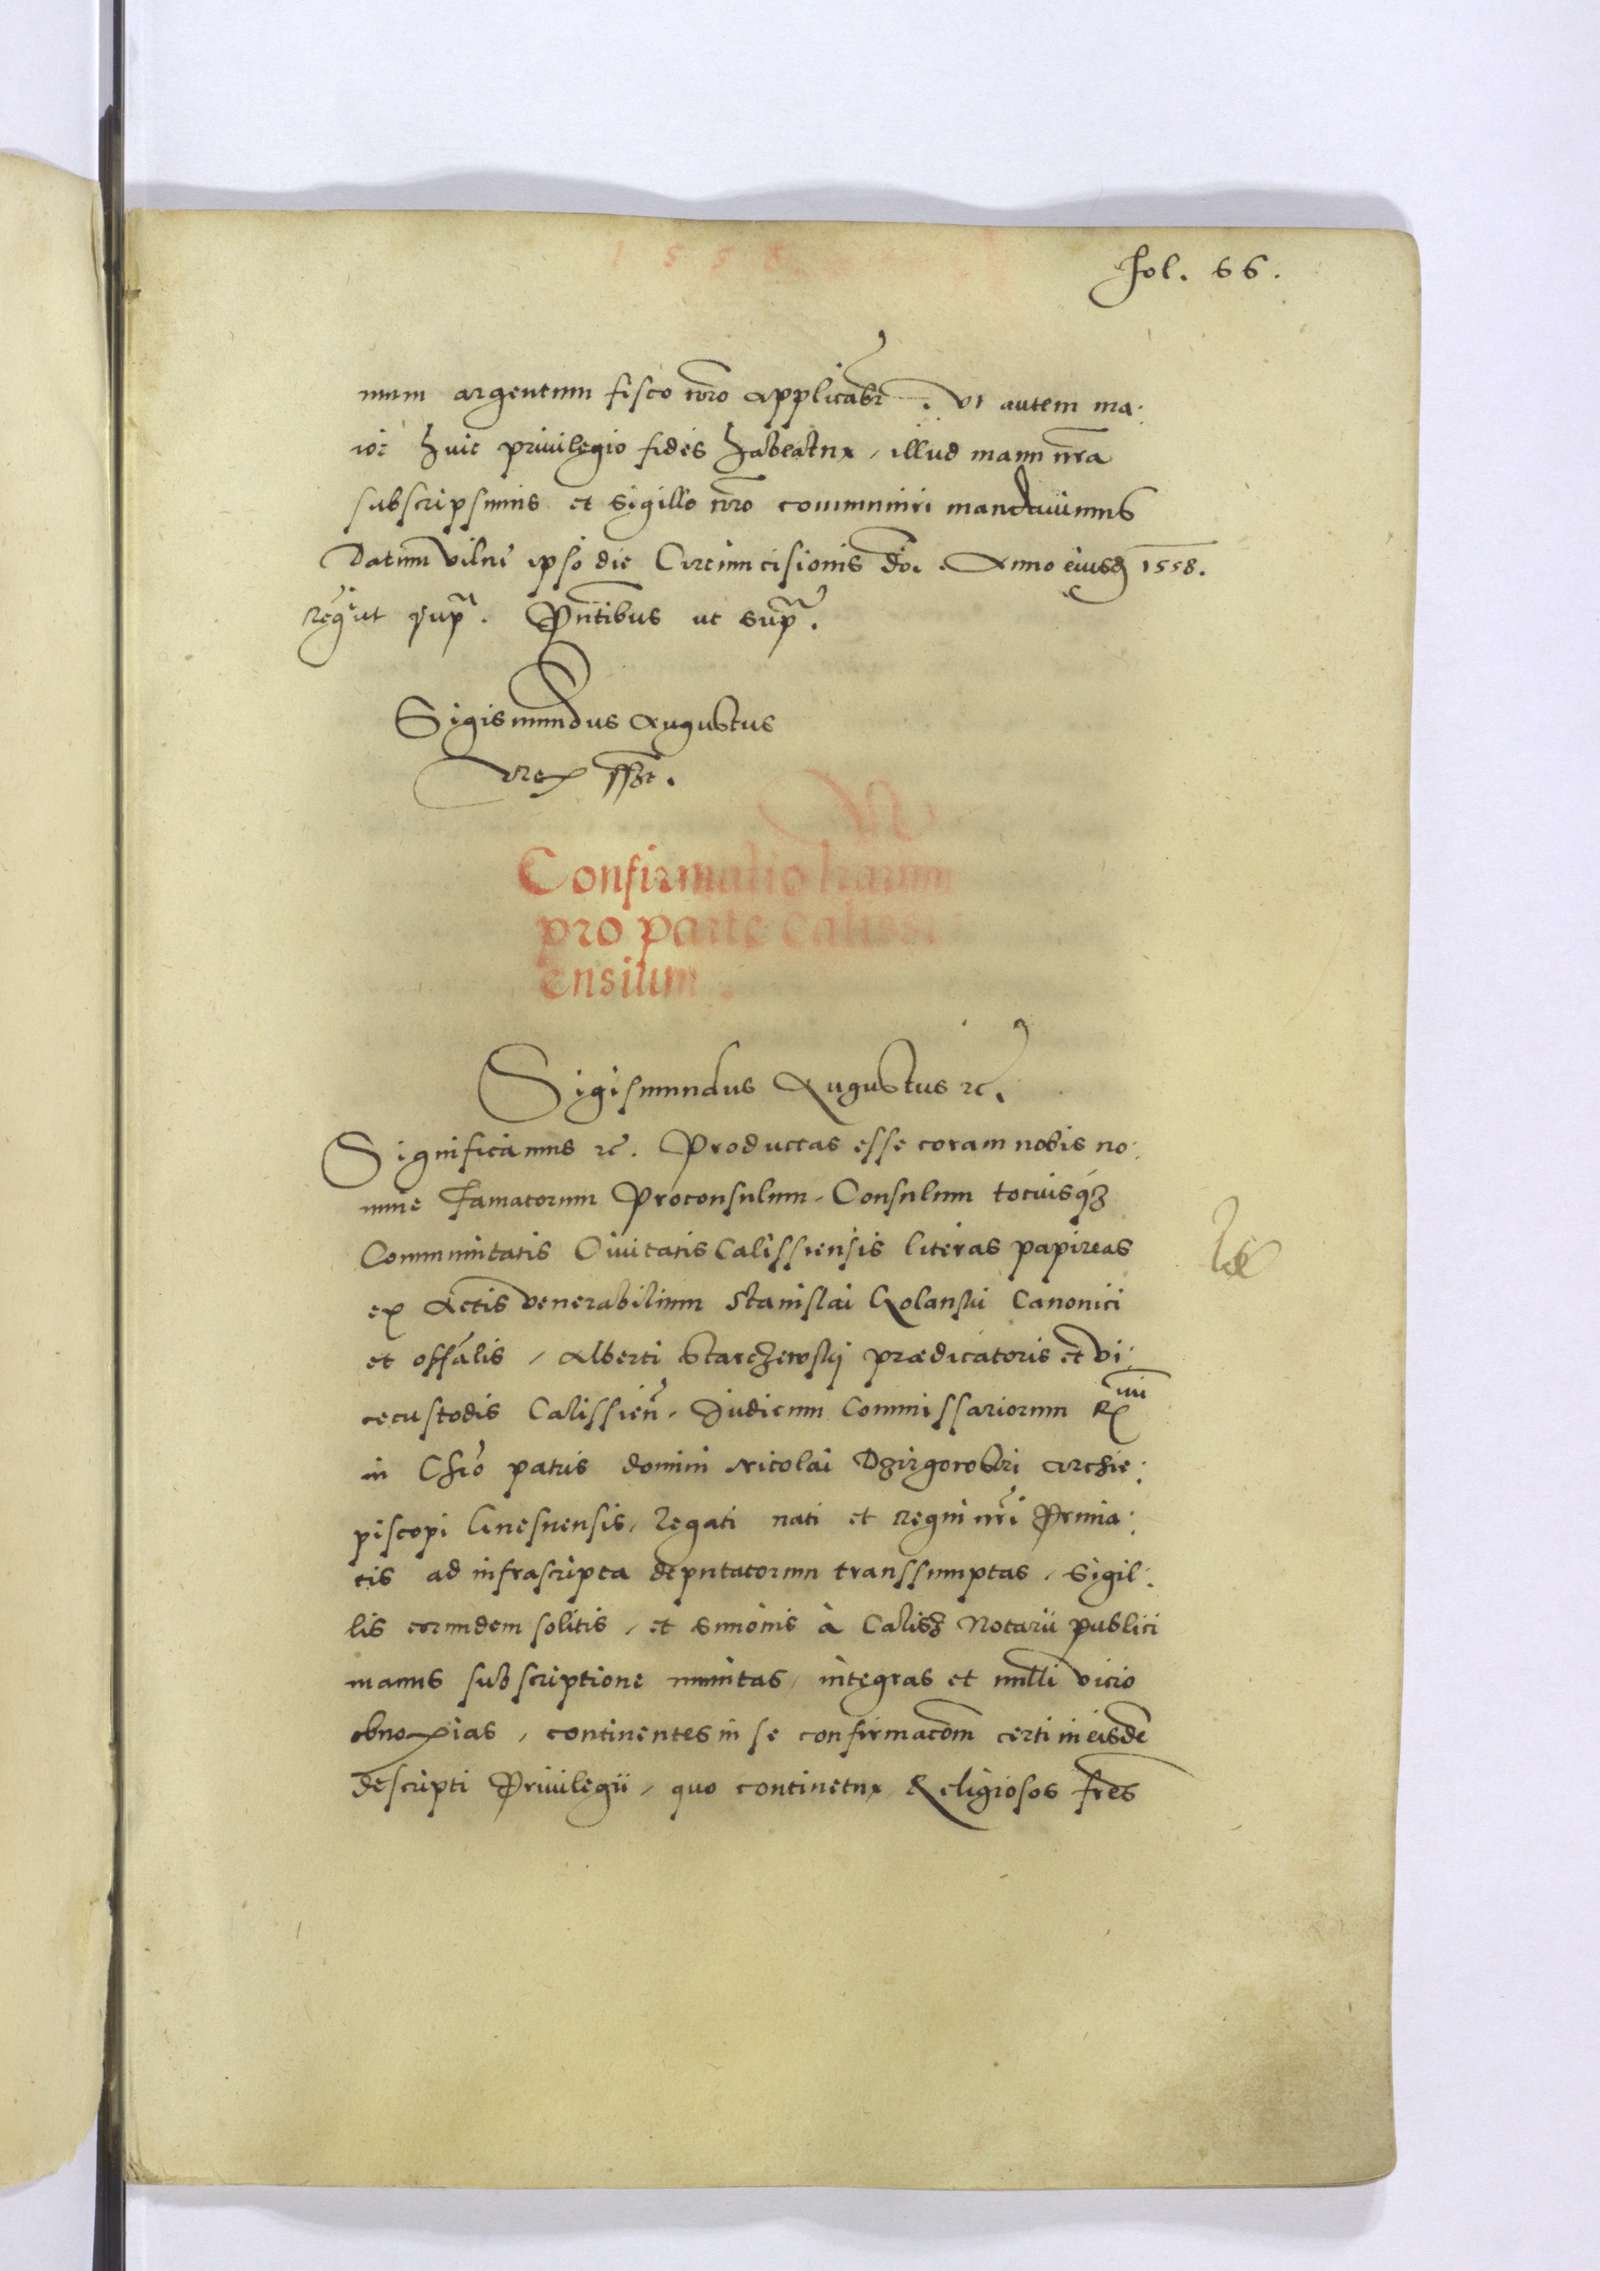 1558
fol. 66.
mum argentum fisco nro applicabt. Ut autem ma:
ior huic privilegio fides habeatur, illud manu nra
subscripsimus et sigillo nro communiri mandavimus
Datum Vilnę ipso die Circumcisionis dni. Anno eiusd 1558.
Reg ut supra. Pntibus ut supra.
Sigismundus Augustus
Rex sszt.
Confirmatio lrarum
pro parte Calissi
ensium.
Sigismundus Augustus ꝛc.
Significamus ꝛc. Productas esse coram nobis no:
mine Famatorum Proconsulum, Consulum totiusq3
Communitatis Civitatis Calissiensis literas papireas
ex Actis venerabilium Stanislai Kolanski Canonici
et offalis, Alberti Starczewskij prædicatoris et vi:
cecustodis Calissien, Judicum Commissariorum Rmi
in Chro patris domini Nicolai Dzirgowski Archie:
piscopi Gnesnensis, Legati nati et Regni nri Prima:
tis ad infrascripta deputatorum transsumptas, sigil:
lis eorundem solitis, et Simonis à Calisz Notarii publici
manus subscriptione munitas, integras et nulli vicio
obnoxias, continentes in se confirmacom certi in eisde
descripti Privilegii, quo continetur Religiosos fres